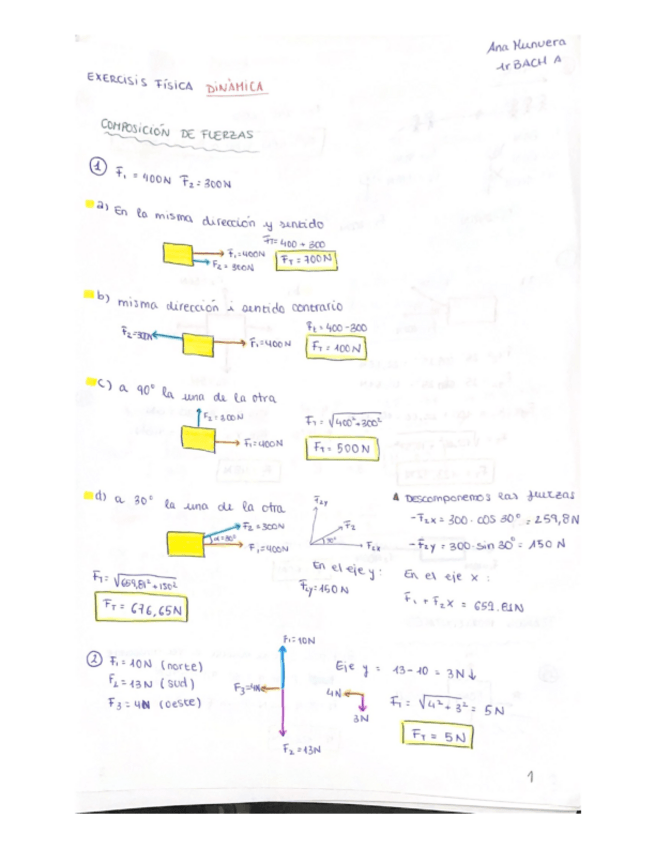 Ana Munuera
1r BACH A
EXERCISIS FÍSICA DINÀMICA
COMPOSICIÓN DE FUERZAS
① F₁ = 400N F₂ = 300N
a) En la misma dirección y sentido
FT = 400 + 300
F₁ = 400N
F₂ = 300N
FT = 700N
b) misma dirección i sentido contrario
F₁ = 400N
Ft = 400 - 300
FT = 100N
c) a 90° la una de la otra
F₂ = 300N
F₁ = 400N
FT = √400² + 300²
FT = 500N
d) a 30° la una de la otra
F₂ = 300N
α = 30°
F₁ = 400N
F₂y
F₂
30°
F₂x
▲ Descomponemos las fuerzas
- F₂x = 300 · cos 30° = 259,8N
- F₂y = 300 · sin 30° = 150 N
En el eje y:
F₂y = 150N
En el eje x:
F₁ + F₂x = 659.81N
FT = √659,81² + 150²
FT = 676,65N
② F₁ = 10N (norte)
F₂ = 13N (sud)
F₃ = 4N (oeste)
F₁ = 10N
F₃ = 4N
F₂ = 13N
4N
3N
Eje y = 13 - 10 = 3N ↓
FT = √4² + 3² = 5N
FT = 5N
1